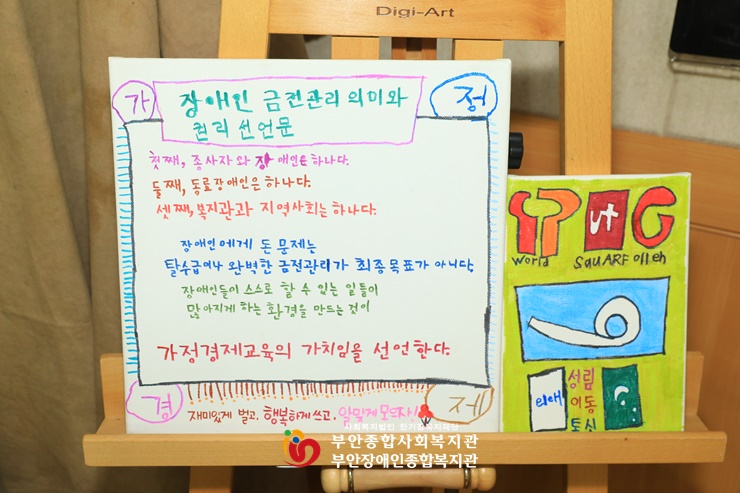 Digi-Art
가
정
장애인 금전관리 의미와
권리 선언문
첫째, 종사자와 장애인은 하나다.
둘째, 동료장애인은 하나다.
셋째, 복지관과 지역사회는 하나다.
장애인에게 돈 문제는
탈수급이나 완벽한 금전관리가 최종목표가 아니다.
장애인들이 스스로 할 수 있는 일들이
많아지게 하는 환경을 만드는 것이
가정경제교육의 가치임을 선언한다.
경
제
재미있게 벌고, 행복하게 쓰고, 알맞게 모으자!
world
SquARF olleh
olleh
성림
이동
통신
사회복지법인 한기장복지재단
부안종합사회복지관
부안장애인종합복지관